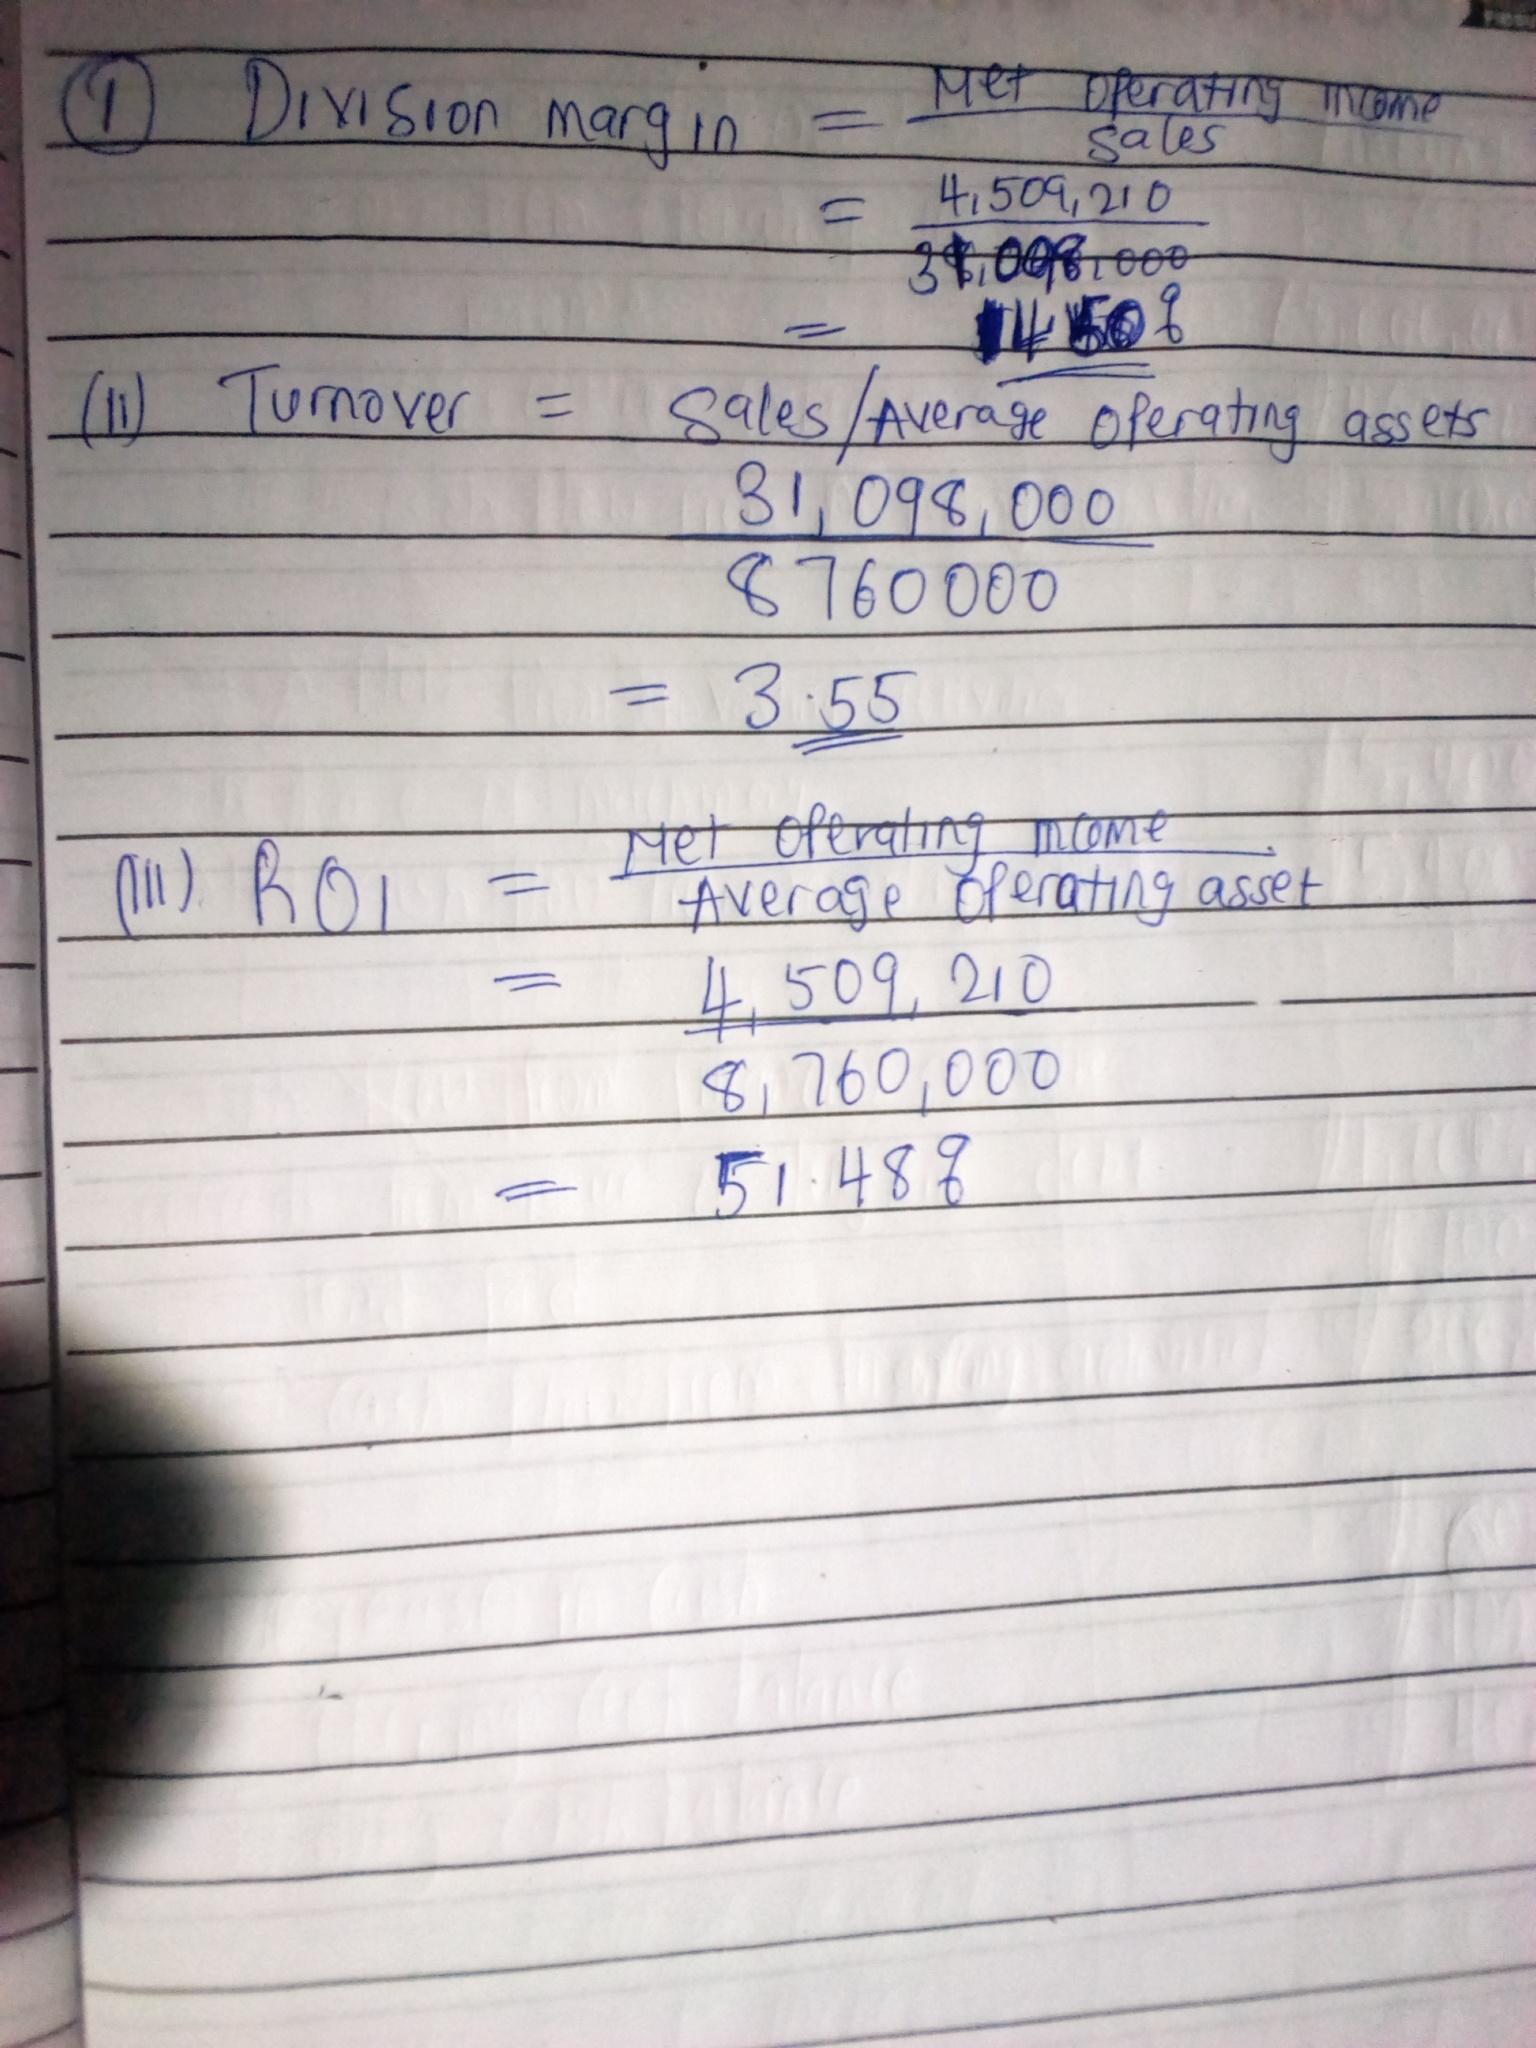 ① Division margin = Net operating income
Sales
= 4,509,210
31,098,000
= 14.50%
(II) Turnover = Sales/Average operating assets
31,098,000
8760000
= 3.55
(III) ROI = Net operating income
Average operating asset
= 4,509,210
8,760,000
= 51.48%